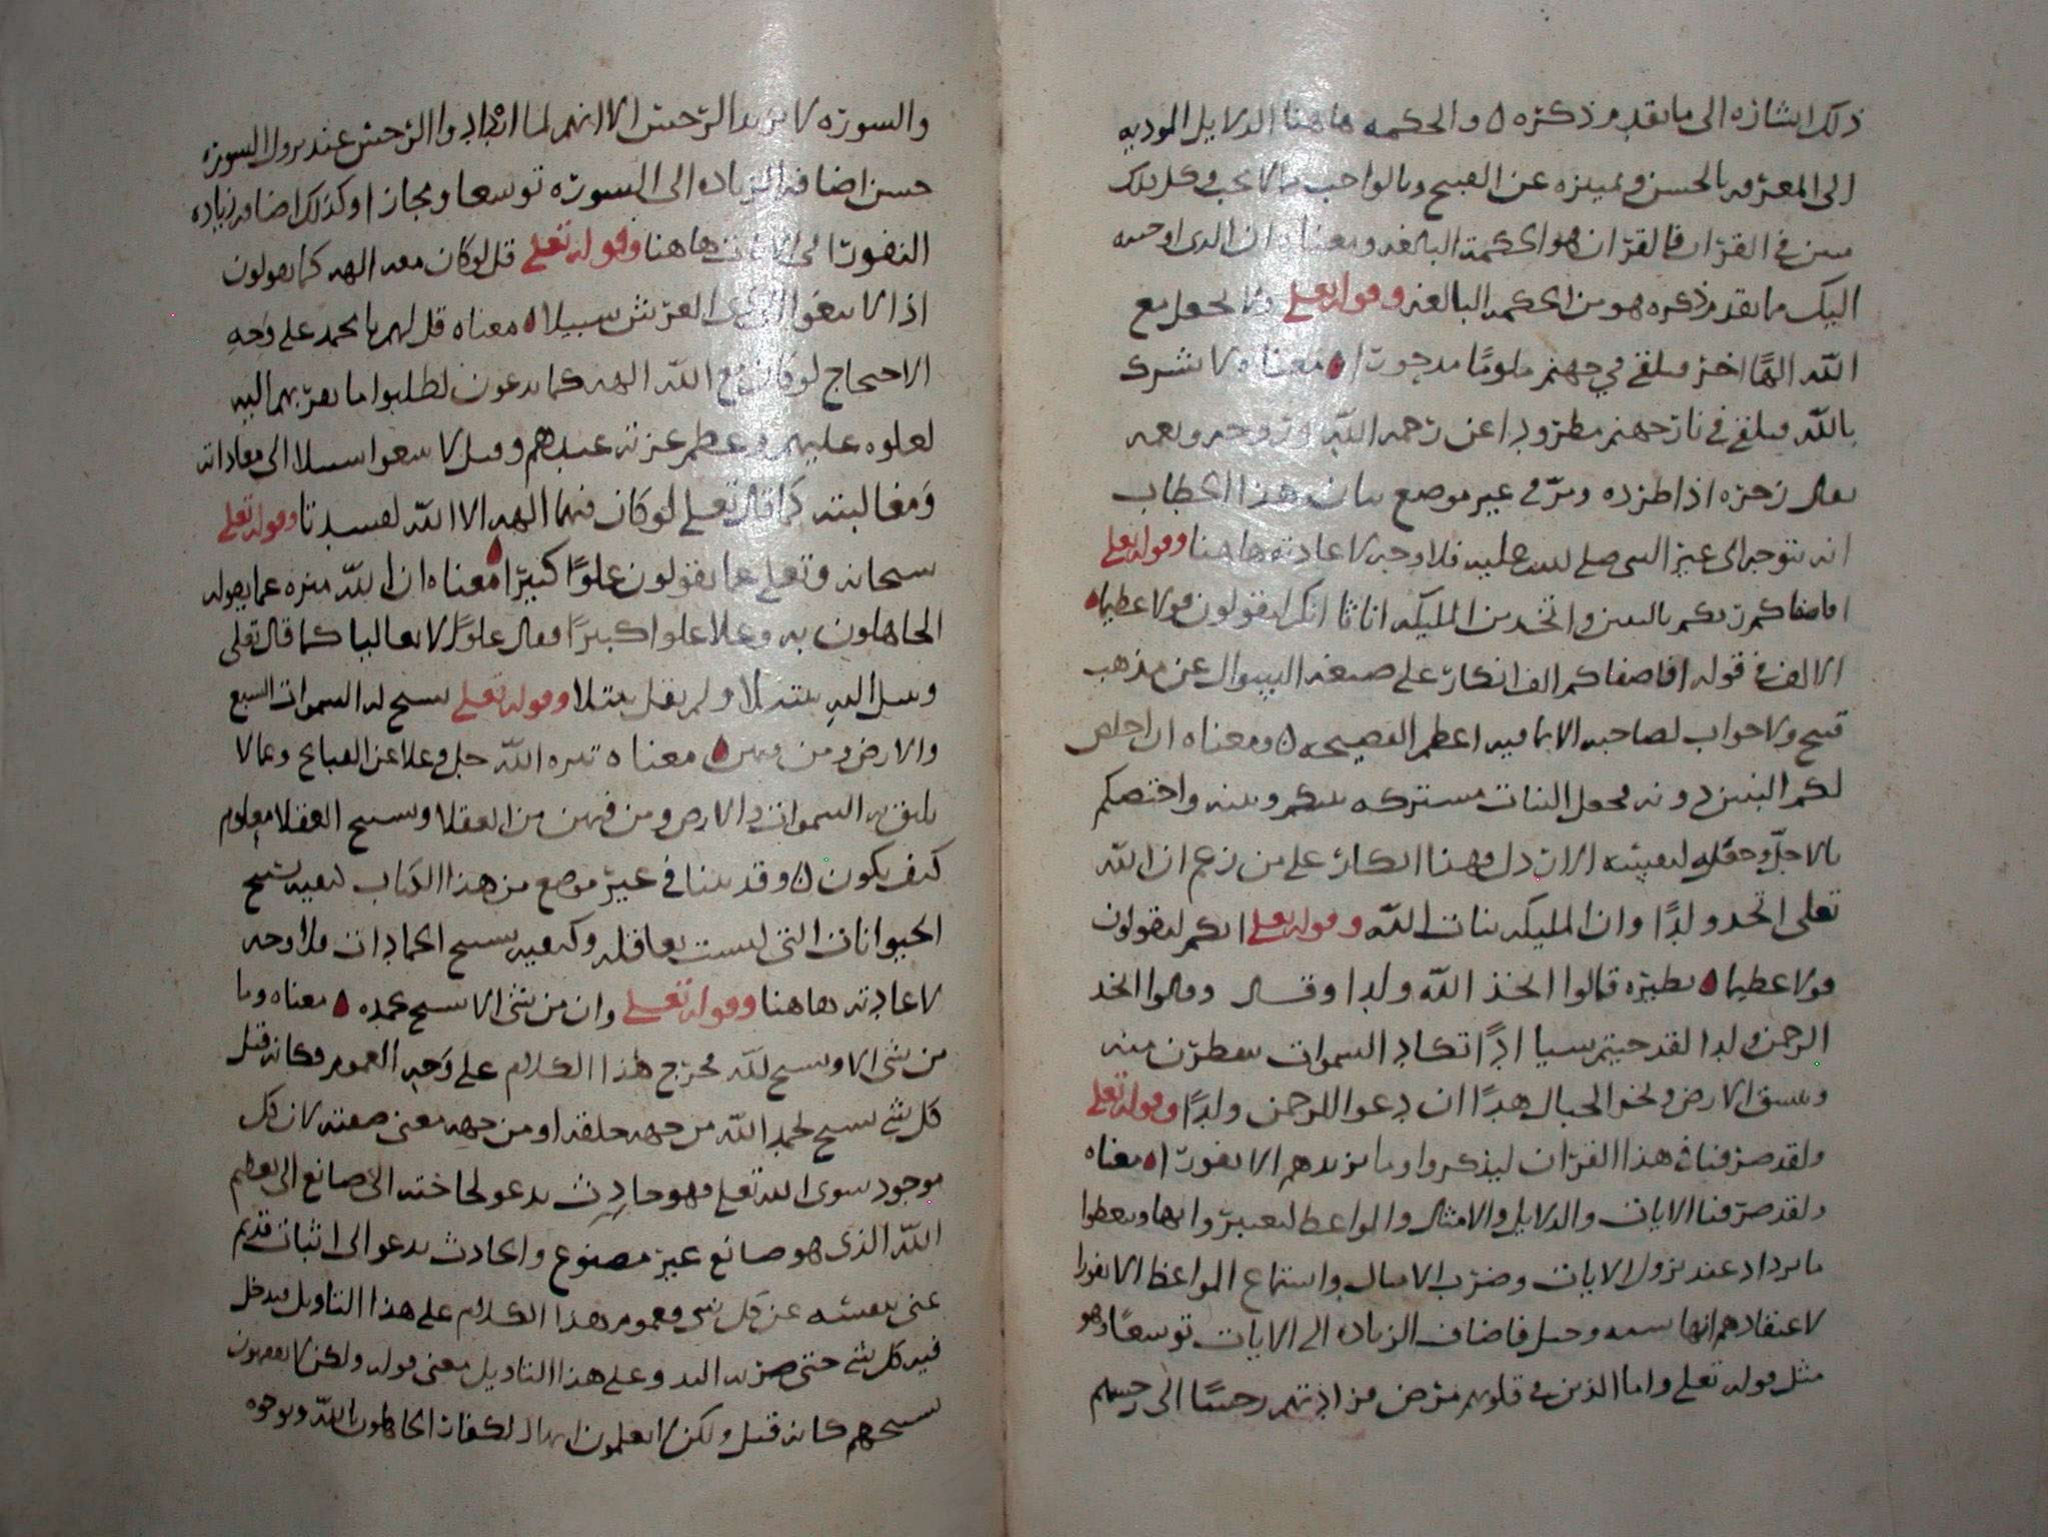 ذلك اشاره الى ما تقدم ذكره ٥ والحكمه هاهنا الدلايل الموديه
الى المعرفه بالحسن وتميزه عن القبيح وبالواجب مما لا يجب وكل ذلك
مبين في القران فالقران هو الحكمة البالغه ومعناه ان الذي اوحيته
اليك ما تقدم ذكره هو من الحكمه البالغه وقوله تعلى ولا تجعل مع
الله الها اخر فتلقى في جهنم ملوما مدحورا ٥ معناه ولا تشرك
بالله فتلقى في نار جهنم مطرودا عن رحمه الله وروحه ونعمه
يقال زجره اذا طرده ومر في غير موضع بيان هذا الخطاب
انه يتوجه الى غير النبي صلى الله عليه فلا وجه لاعادته هاهنا وقوله تعلى
افاصفاكم ربكم بالبنين واتخذ من المليكه اناثا انكم لتقولون قولا عظيما ٥
الالف في قوله افاصفاكم الف انكار على صيغه السوال عن مذهب
قبيح ولا جواب لصاحبه الا بما فيه اعظم الفضيحه ٥ ومعناه ان اخلص
لكم البنين دونه وجعل البنات مشتركه بينكم وبينه واختصكم
بالاجل وجعل لنفسه الادون دل وهذا انكار على من زعم ان الله
تعلى اتخذ ولدا وان المليكه بنات الله وقوله تعلى انكم لتقولون
قولا عظيما ٥ نظيره قالوا اتخذ الله ولدا وقال وقالوا اتخذ
الرحمن ولدا لقد جيتم شيا ادا تكاد السموات يتفطرن منه
وتنشق الارض وتخر الجبال هدا ان دعوا للرحمن ولدا وقوله تعلى
ولقد صرفنا في هذا القران ليذكروا وما يزيدهم الا نفورا ٥ معناه
ولقد صرفنا الايات والدلايل والامثال والمواعظ ليعتبروا بها ويتعظوا
ما يزداد عند نزول الايات وضرب الامثال واستماع المواعظ الا نفورا
لاعتقادهم انها شبه وحيل فاضاف الزياده الى الايات توسعا وهو
مثل قوله تعلى واما الذين في قلوبهم مرض فزادتهم رجسا الى رجسهم
والسوره لا تزيد الرجس الا انهم لما ازدادوا الرجس عند نزول السوره
حسن اضافه الزياده الى السوره توسعا ومجازا وكذلك اضافه زياده
النفور الى الايات هاهنا وقوله تعلى قل لو كان معه الهه كما يقولون
اذا لابتغوا الى ذي العرش سبيلا ٥ معناه قل لهم يا محمد على وجه
الاحتجاج لو كان مع الله الهه كما يدعون لطلبوا ما يقربهم اليه
لعلوه عليهم وعظم عزته عندهم وقيل لابتغوا سبيلا الى معاداته
ومغالبته كما قال تعلى لو كان فيهما الهه الا الله لفسدتا وقوله تعلى
سبحانه وتعلى عما يقولون علوا كبيرا ٥ معناه ان الله منزه عما يقوله
الجاهلون به وعلا علوا كبيرا فقال علوا لا تعاليا كما قال تعلى
وتبتل اليه تبتيلا ولم يقل تبتلا وقوله تعلى تسبح له السموات السبع
والارض ومن فيهن ٥ معناه تنزه الله جل وعلا عن القبايح وعما لا
يليق به السموات والارض ومن فيهن من العقلا وتسبيح العقلا معلوم
كيف يكون ٥ وقد بينا في غير موضع من هذا الكتاب كيفيه تسبيح
الحيوانات التي ليست بعاقله وكيفيه تسبيح الجمادات فلا وجه
لاعادته هاهنا وقوله تعلى وان من شي الا يسبح بحمده ٥ معناه وما
من شي الا ويسبح لله مخرج هذا الكلام على وجه العموم فكانه قيل
كل شي يسبح بحمد الله من جهه خلقه او من جهه معنى صفته لان كل
موجود سوى الله تعلى فهو حادث يدعو لحاجته الى صانع الى تعظيم
الله الذي هو صانع غير مصنوع والحادث يدعو الى اثبات قديم
غني بنفسه عن كل شي فعموم هذا الكلام على هذا التاويل فيدخل
فيه كل شي حتى اليد وعلى هذا التاويل معنى قوله ولكن لا تفقهون
تسبيحهم كانه قيل ولكن لا تعلمون ايها الكفار الجاهلون بالله وبوجوه